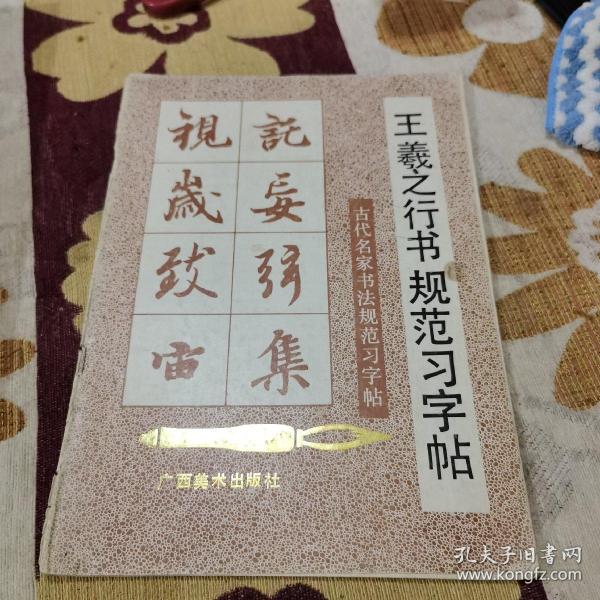 王羲之行书规范习字帖
古代名家书法规范习字帖
託妄弭集
視歲致宙
广西美术出版社
孔夫子旧书网
www.kongfz.com